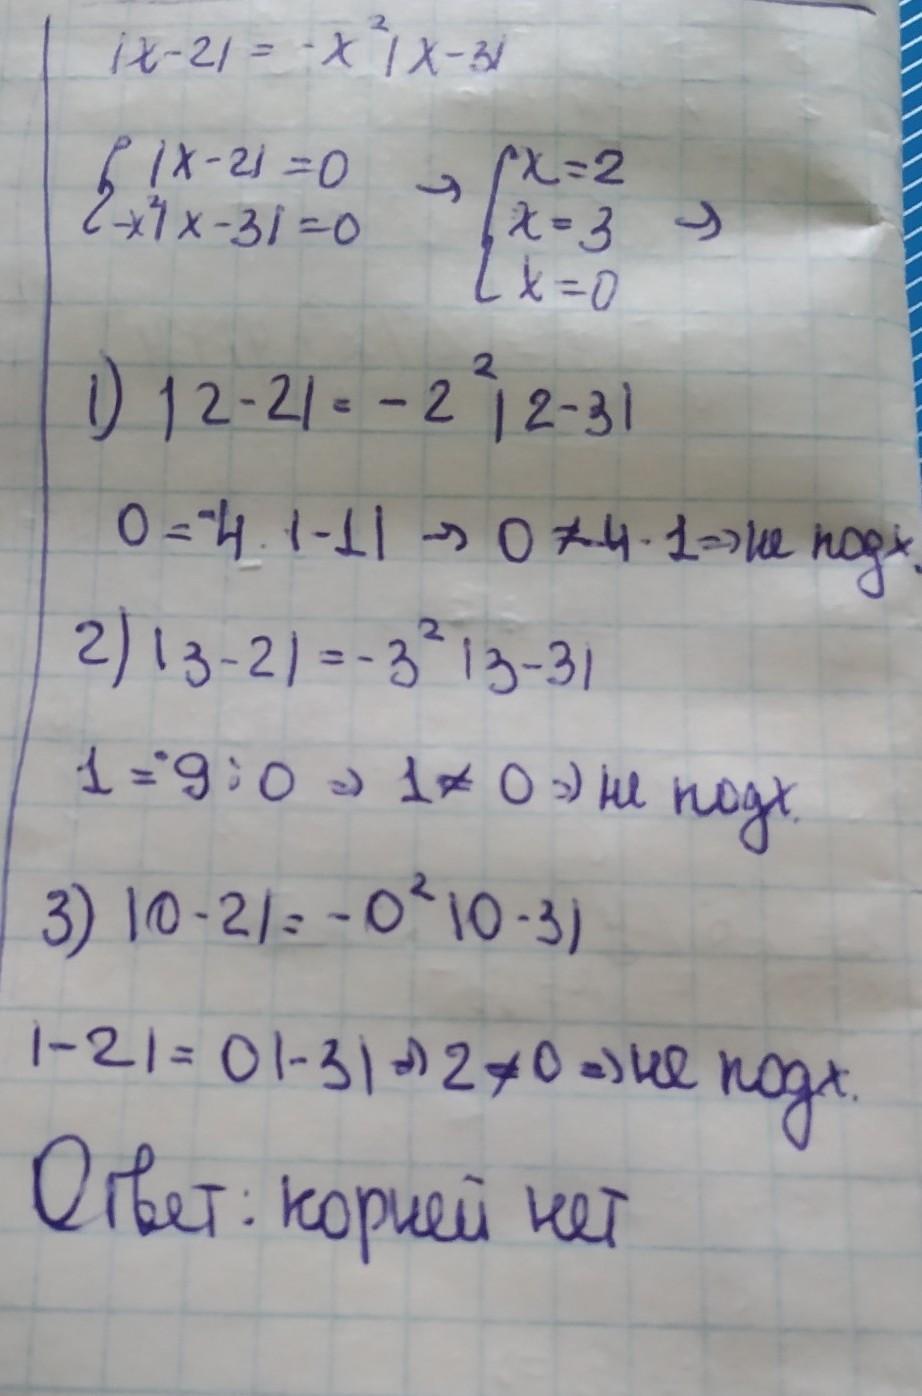 |x-2| = -x²|x-3|
{ |x-2| = 0 → { x=2
-x²|x-3| = 0 x=3 →
x=0
1) |2-2| = -2²|2-3|
0 = -4 · |-1| → 0 ≠ -4 · 1 => не подх.
2) |3-2| = -3²|3-3|
1 = -9 · 0 => 1 ≠ 0 => не подх.
3) |0-2| = -0²|0-3|
|-2| = 0|-3| => 2 ≠ 0 => не подх.
Ответ: корней нет